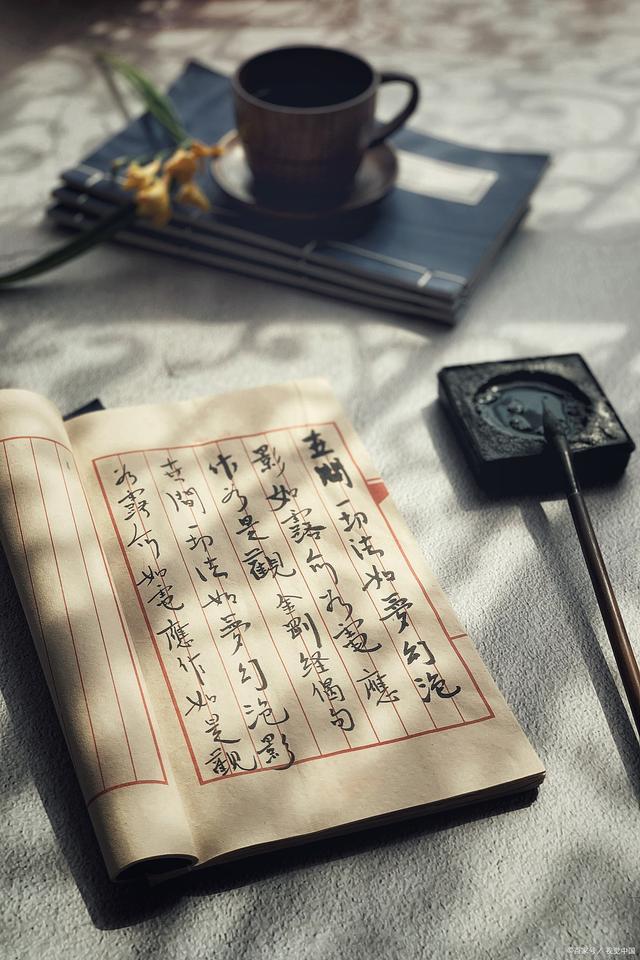 世間一切法如夢幻泡
影如露亦如電應
作如是觀金剛經偈句
世間一切法如夢幻泡影
如露亦如電應作如是觀
©百家号/视觉中国